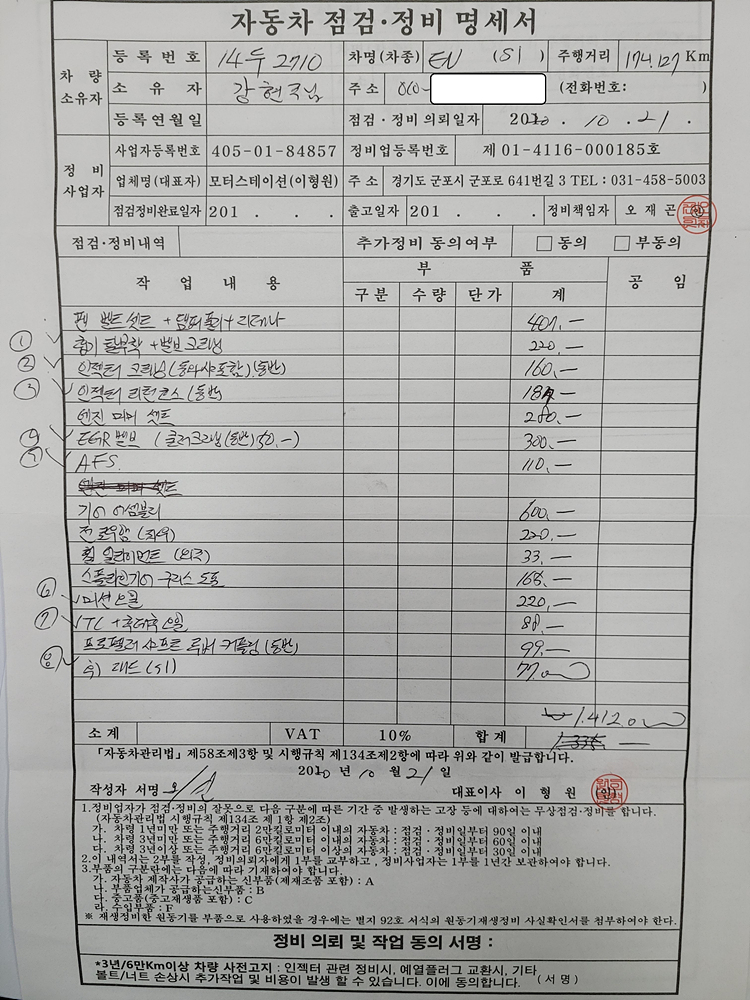 자동차 점검·정비 명세서
차량 소유자 등록번호 14두2710 차명(차종) EN (SI) 주행거리 174.127Km
소유자 강현국님 주소 010- (전화번호: )
등록연월일 점검·정비 의뢰일자 2020. 10. 21.
정비 사업자 사업자등록번호 405-01-84857 정비업등록번호 제 01-4116-000185호
업체명(대표자) 모터스테이션(이형원) 주소 경기도 군포시 군포로 641번길 3 TEL : 031-458-5003
점검정비완료일자 201 . . . 출고일자 201 . . . 정비책임자 오재곤 (인)
점검·정비내역 추가정비 동의여부 □ 동의 □ 부동의
작업내용 부품 공임
구분 수량 단가 계
팬 벨트셋트 + 댐퍼풀리 + 리데나 407.—
① 흡기 탈부착 + 밸브크리닝 220.—
② 인젝터 크리닝(동와샤포함)(동반) 160.—
③ 인젝터 리턴호스(동반)
엔진 미미 셋트 280.—
④ EGR밸브 (쿨러크리닝(동반)50.—) 300.—
⑤ AFS. 110.—
엔진 미미 셋트
기어 어셈블리 600.—
전 로우암 (좌우) 220.—
휠 얼라이먼트 (외주) 33.—
스플라인기어 구리스 도포 165.—
⑥ 미션오일 220.—
⑦ TC + 후데후오일 88.—
프로펠러 샤프트 루버 커플링(동반) 99.—
⑧ 축) 대드(SI) 77.000
1.412.000
소계 VAT 10% 합계 1.335.—
「자동차관리법」제58조제3항 및 시행규칙 제134조제2항에 따라 위와 같이 발급합니다.
2020 년 10 월 21 일
작성자 서명 대표이사 이형원 (인)
1.정비업자가 점검·정비의 잘못으로 다음 구분에 따른 기간 중 발생하는 고장 등에 대하여는 무상점검·정비를 합니다.
(자동차관리법 시행규칙 제134조 제1항 제2조)
가. 차령 1년미만 또는 주행거리 2만킬로미터 이내의 자동차 : 점검·정비일부터 90일 이내
나. 차령 3년미만 또는 주행거리 6만킬로미터 이내의 자동차 : 점검·정비일부터 60일 이내
다. 차령 3년이상 또는 주행거리 6만킬로미터 이상의 자동차 : 점검·정비일부터 30일 이내
2.이 내역서는 2부를 작성, 정비의뢰자에게 1부를 교부하고, 정비사업자는 1부를 1년간 보관하여야 합니다.
3.부품의 구분란에는 다음에 따라 기재하여야 합니다.
가. 자동차 제작사가 공급하는 신부품(제재조품 포함) : A
나. 부품업체가 공급하는신부품 : B
다. 중고품(중고재생품 포함) : C
라. 수입부품 : F
※ 재생정비한 원동기를 부품으로 사용하였을 경우에는 별지 92호 서식의 원동기재생정비 사실확인서를 첨부하여야 한다.
정비 의뢰 및 작업 동의 서명 :
*3년/6만Km이상 차량 사전고지 : 인젝터 관련 정비시, 예열플러그 교환시, 기타
볼트/너트 손상시 추가작업 및 비용이 발생 할 수 있습니다. 이에 동의합니다. (서명)